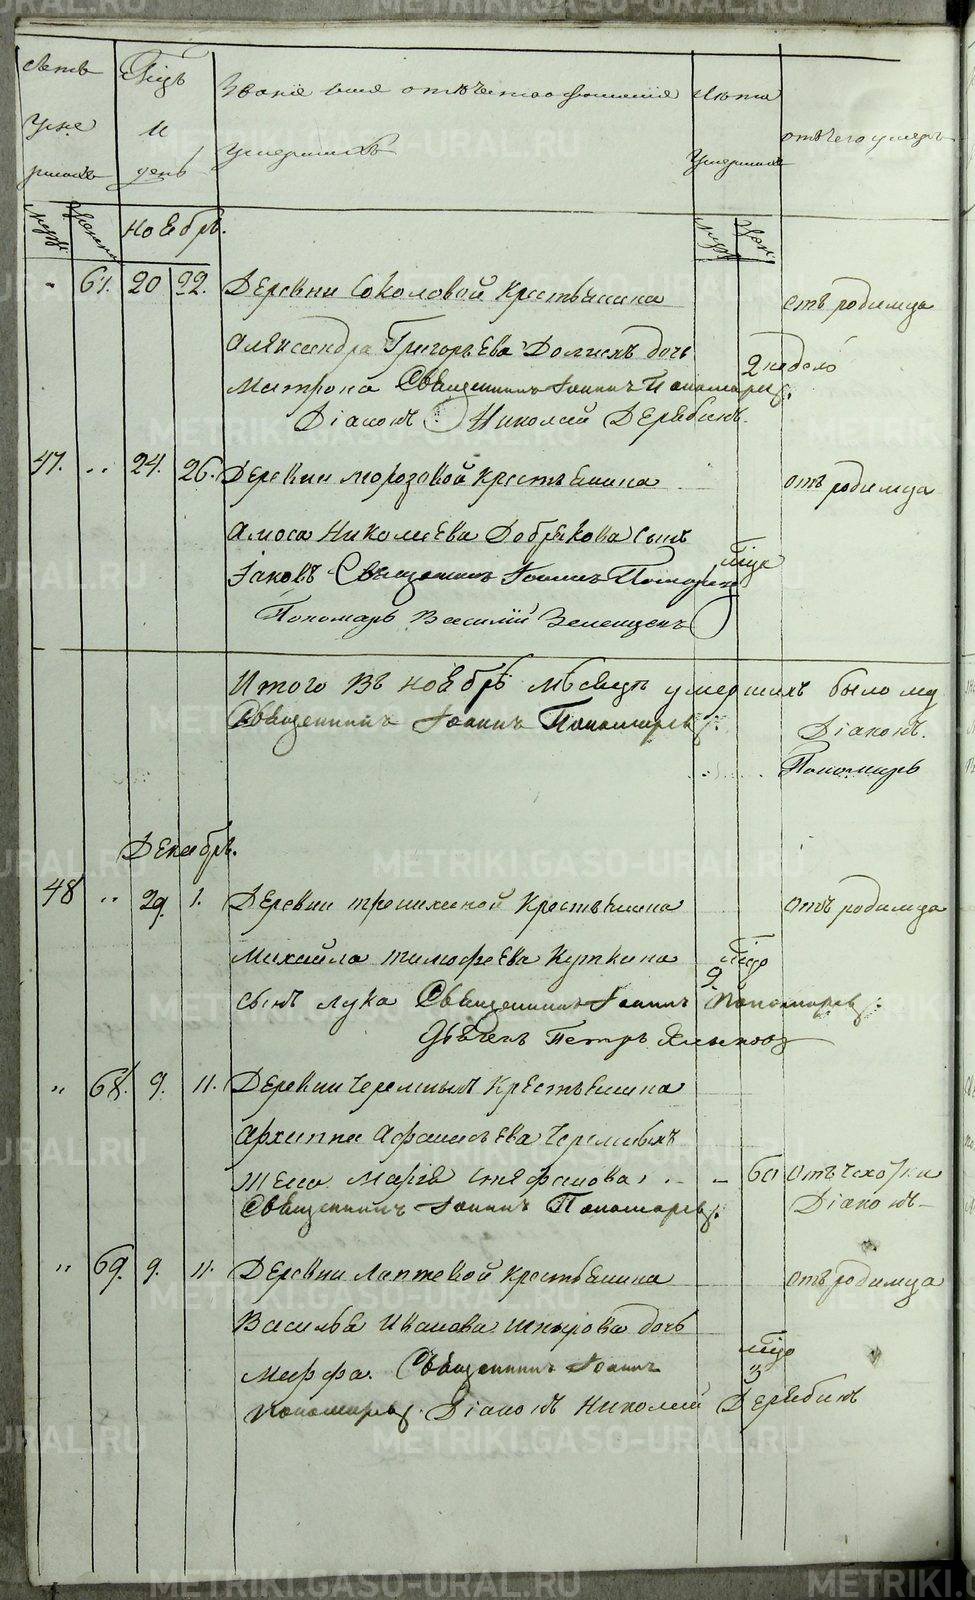 METRIKI.GASO-URAL.RU
Счетъ Мѣсяцъ Званіе имя отчество и фамилія Лѣта
Уме и отъ чего умеръ
ршихъ день умершихъ умершаго
муж. женск. Ноябрь. муж. женс.
" 67. 20 22. Деревни Соколовой крестьянина отъ родимца
Александра Григорьева Долгихъ дочь 2 недель
Матрона Священникъ Іоаннъ Пономаревъ.
Діаконъ Николай Дерябинъ.
47. " 24. 26. Деревни Морозовой крестьянина отъ родимца
Амоса Николаева Добрякова сынъ
Іаковъ Священникъ Іоаннъ Пономаревъ мѣце
Пономарь Василій
Итого въ ноябрѣ мѣсяцѣ умершихъ было му
Священникъ Іоаннъ Пономаревъ. Діаконъ.
Пономарь
Декабрь.
48 " 29. 1. Деревни крестьянина отъ родимца
Михайла Тимофеева Куткина мѣцо
сынъ Лука Священникъ Іоаннъ Пономаревъ 9
Дьячекъ Петръ
" 68. 9. 11. Деревни Черемныхъ крестьянина
Архиппа Афанасьева Черемныхъ
жена Марія Стефанова 60 отъ чахотки
Священникъ Іоаннъ Пономаревъ. Діаконъ
" 69. 9. 11. Деревни Лаптевой крестьянина отъ родимца
Василья Иванова дочь мѣцо
Марфа. Священникъ Іоаннъ 3
Пономаревъ. Діаконъ Николай Дерябинъ